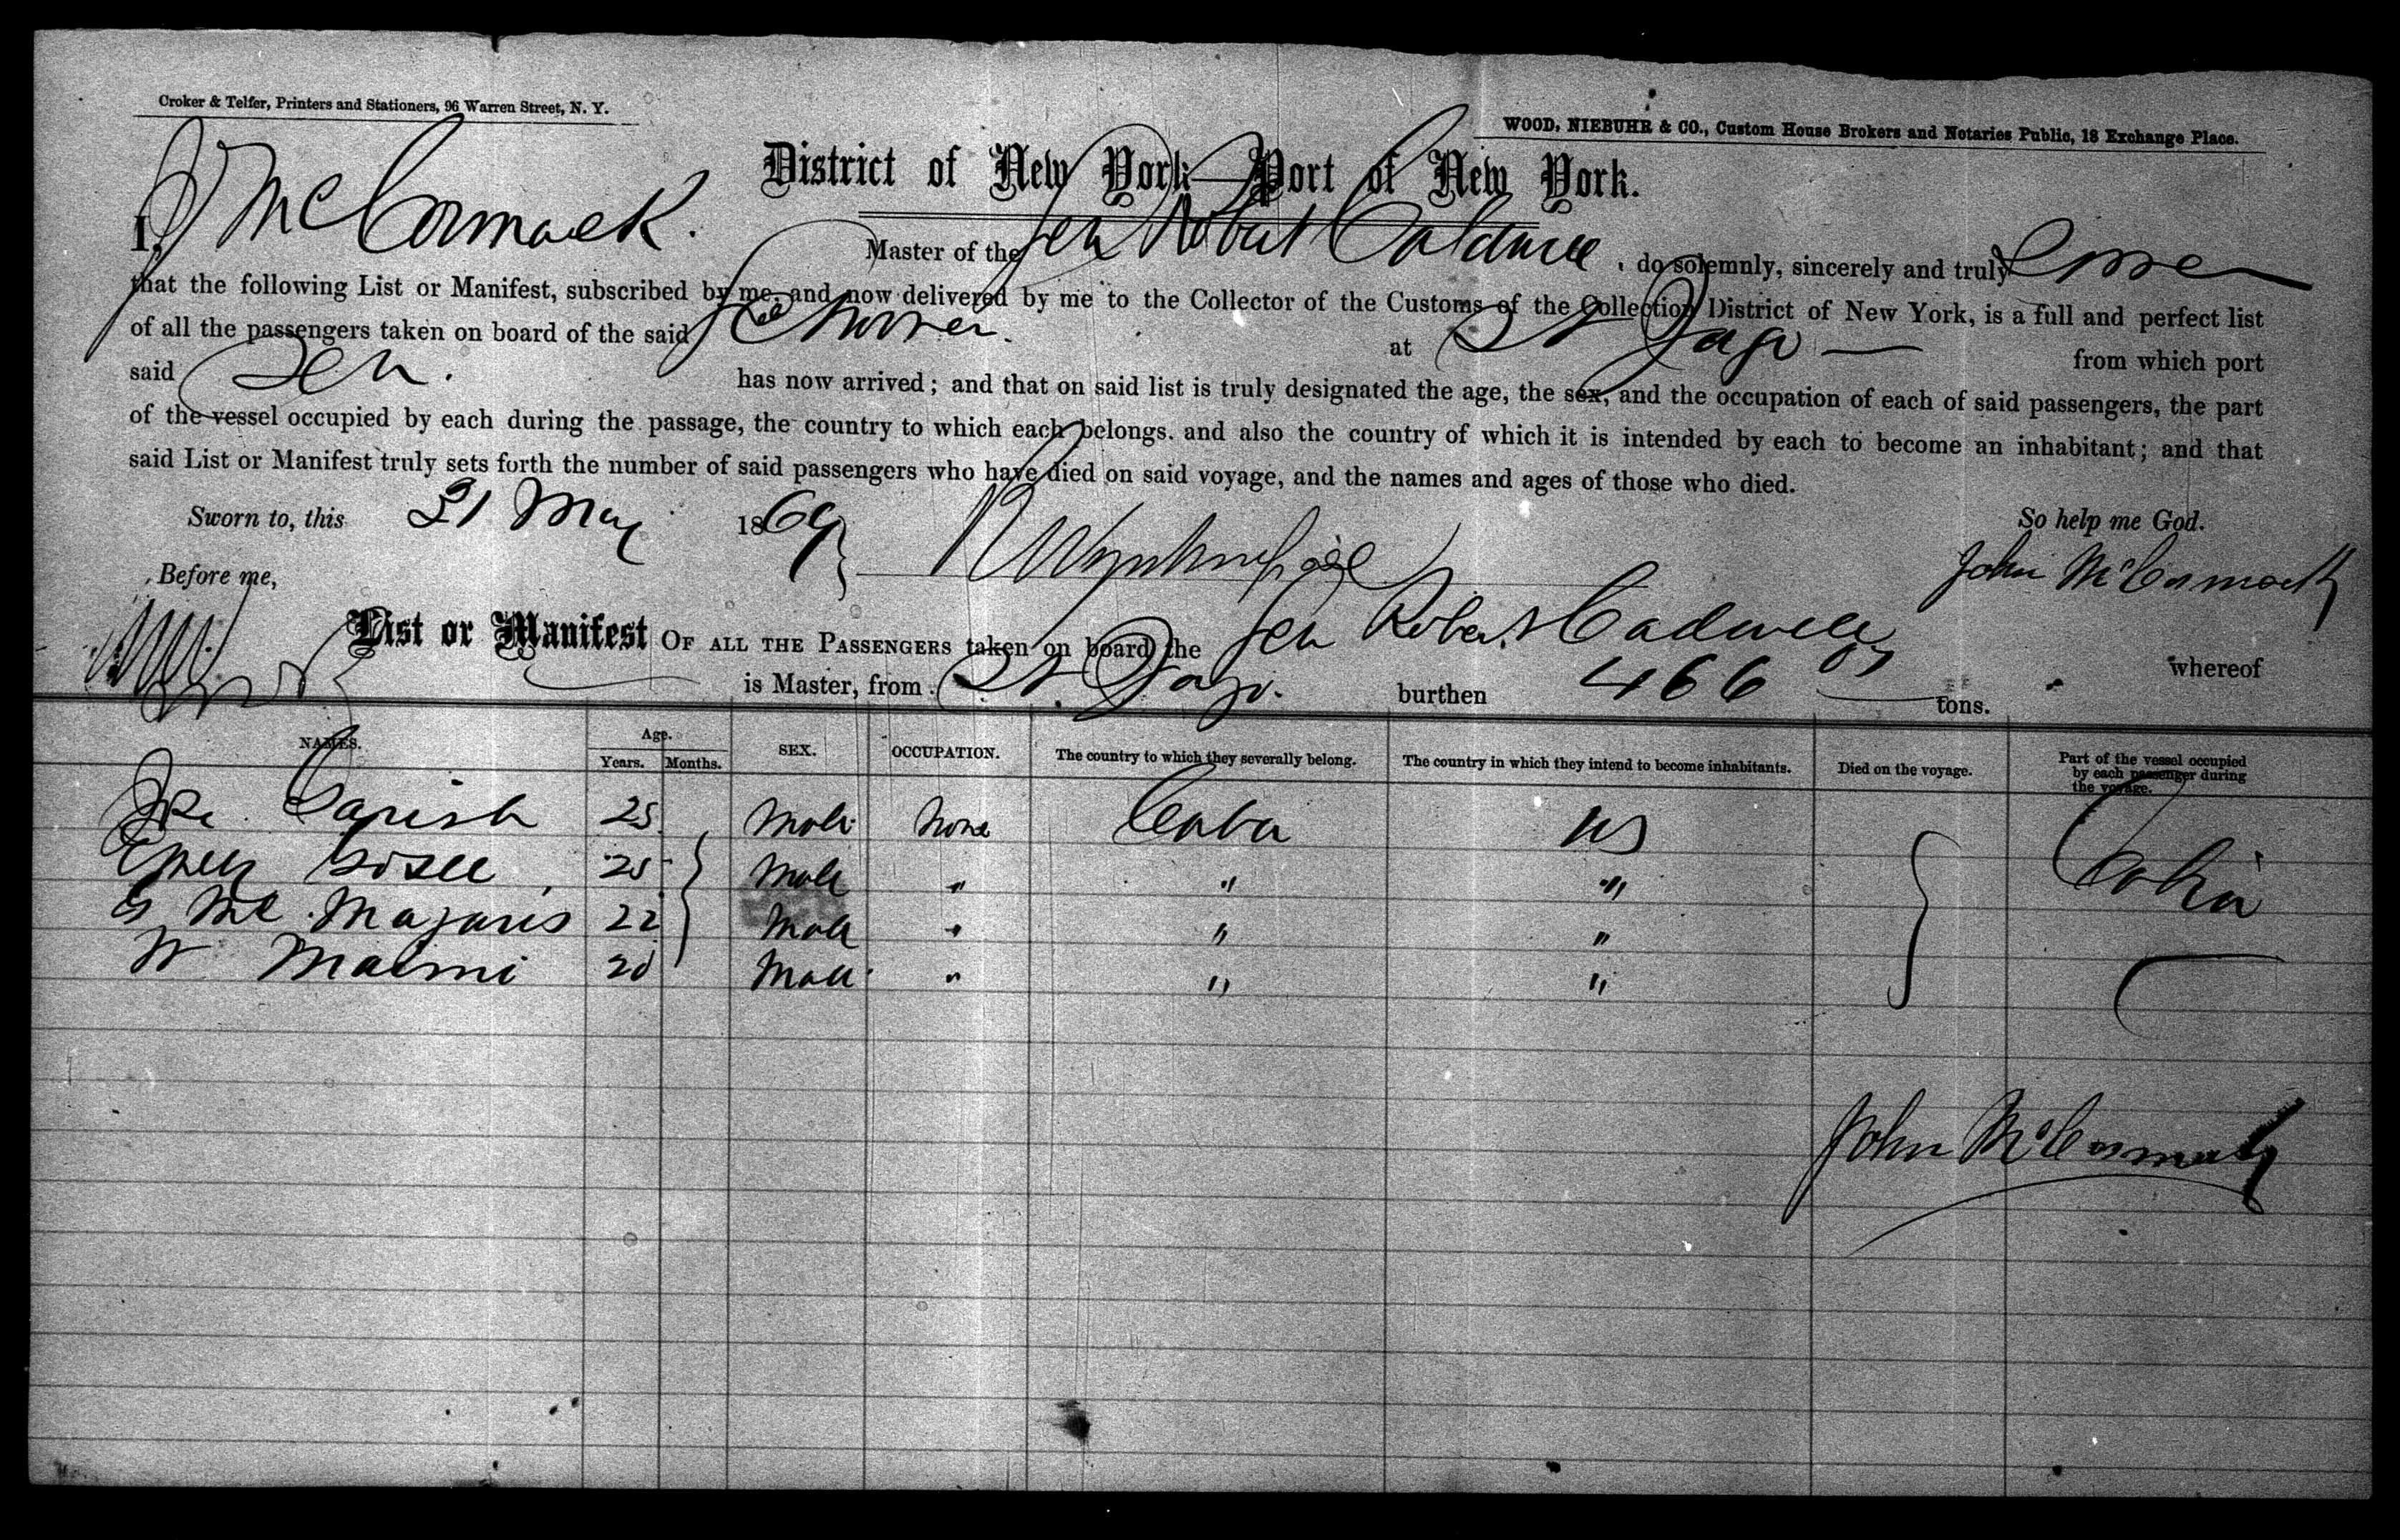 Croker & Telfer, Printers and Stationers, 96 Warren Street, N. Y.
WOOD, NIEBUHR & CO., Custom House Brokers and Notaries Public, 18 Exchange Place.
District of New York—Port of New York.
I, J McCormack. Master of the Sch Robert Caldwell, do solemnly, sincerely and truly
that the following List or Manifest, subscribed by me, and now delivered by me to the Collector of the Customs of the Collection District of New York, is a full and perfect list
of all the passengers taken on board of the said Schooner. at St Jago — from which port
said Sch. has now arrived; and that on said list is truly designated the age, the sex, and the occupation of each of said passengers, the part
of the vessel occupied by each during the passage, the country to which each belongs. and also the country of which it is intended by each to become an inhabitant; and that
said List or Manifest truly sets forth the number of said passengers who have died on said voyage, and the names and ages of those who died.
Sworn to, this 31 May 1869 So help me God.
Before me, John McCormack
List or Manifest OF ALL THE PASSENGERS taken on board the Sch Robert Cadwell whereof
is Master, from St. Jago. burthen 466 tons.
NAMES. Age. Years. Months. SEX. OCCUPATION. The country to which they severally belong. The country in which they intend to become inhabitants. Died on the voyage. Part of the vessel occupied by each passenger during the voyage.
25 Male None Cuba US Cabin
25 Male " " "
22 Male " " "
W 20 Male " " "
John McCormack